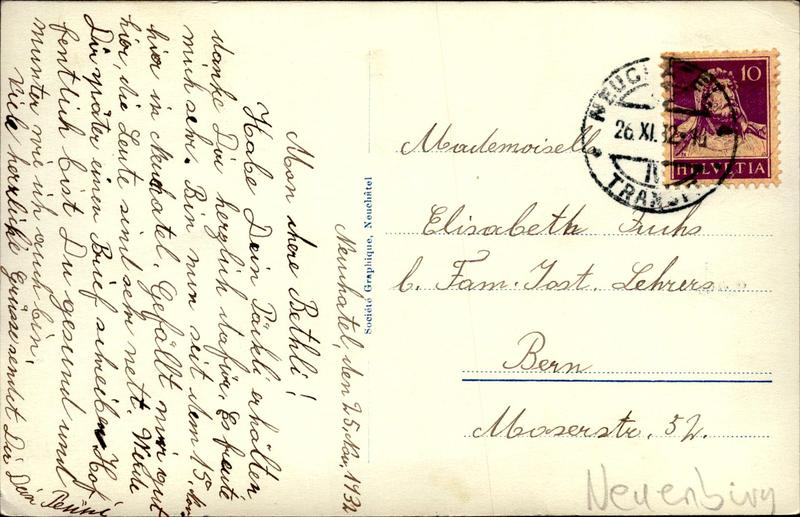 Neuchatel, den 25. Nov. 1932
Mon chere Bethli!
Habe Dein Päckli erhalten
danke Dir herzlich dafür. Es freute
mich sehr. Bin nun seit dem 15. Nov.
hier in Neuchatel. Gefällt mir gut
hier, die Leute sind sem nett. Werde
Dir später einen Brief schreiben. Hof
fentlich bist Du gesund und
munter wie ich auch bin.
Viele herzliche Grüsse sendet Dir Dein
Société Graphique, Neuchâtel
NEUCH
26. XI. 32
IV
TRANSIT
10
HELVETIA
Mademoisell
Elisabeth Fuchs
b. Fam. Jost. Lehrers
Bern
Moserstr. 52.
Neuenburg